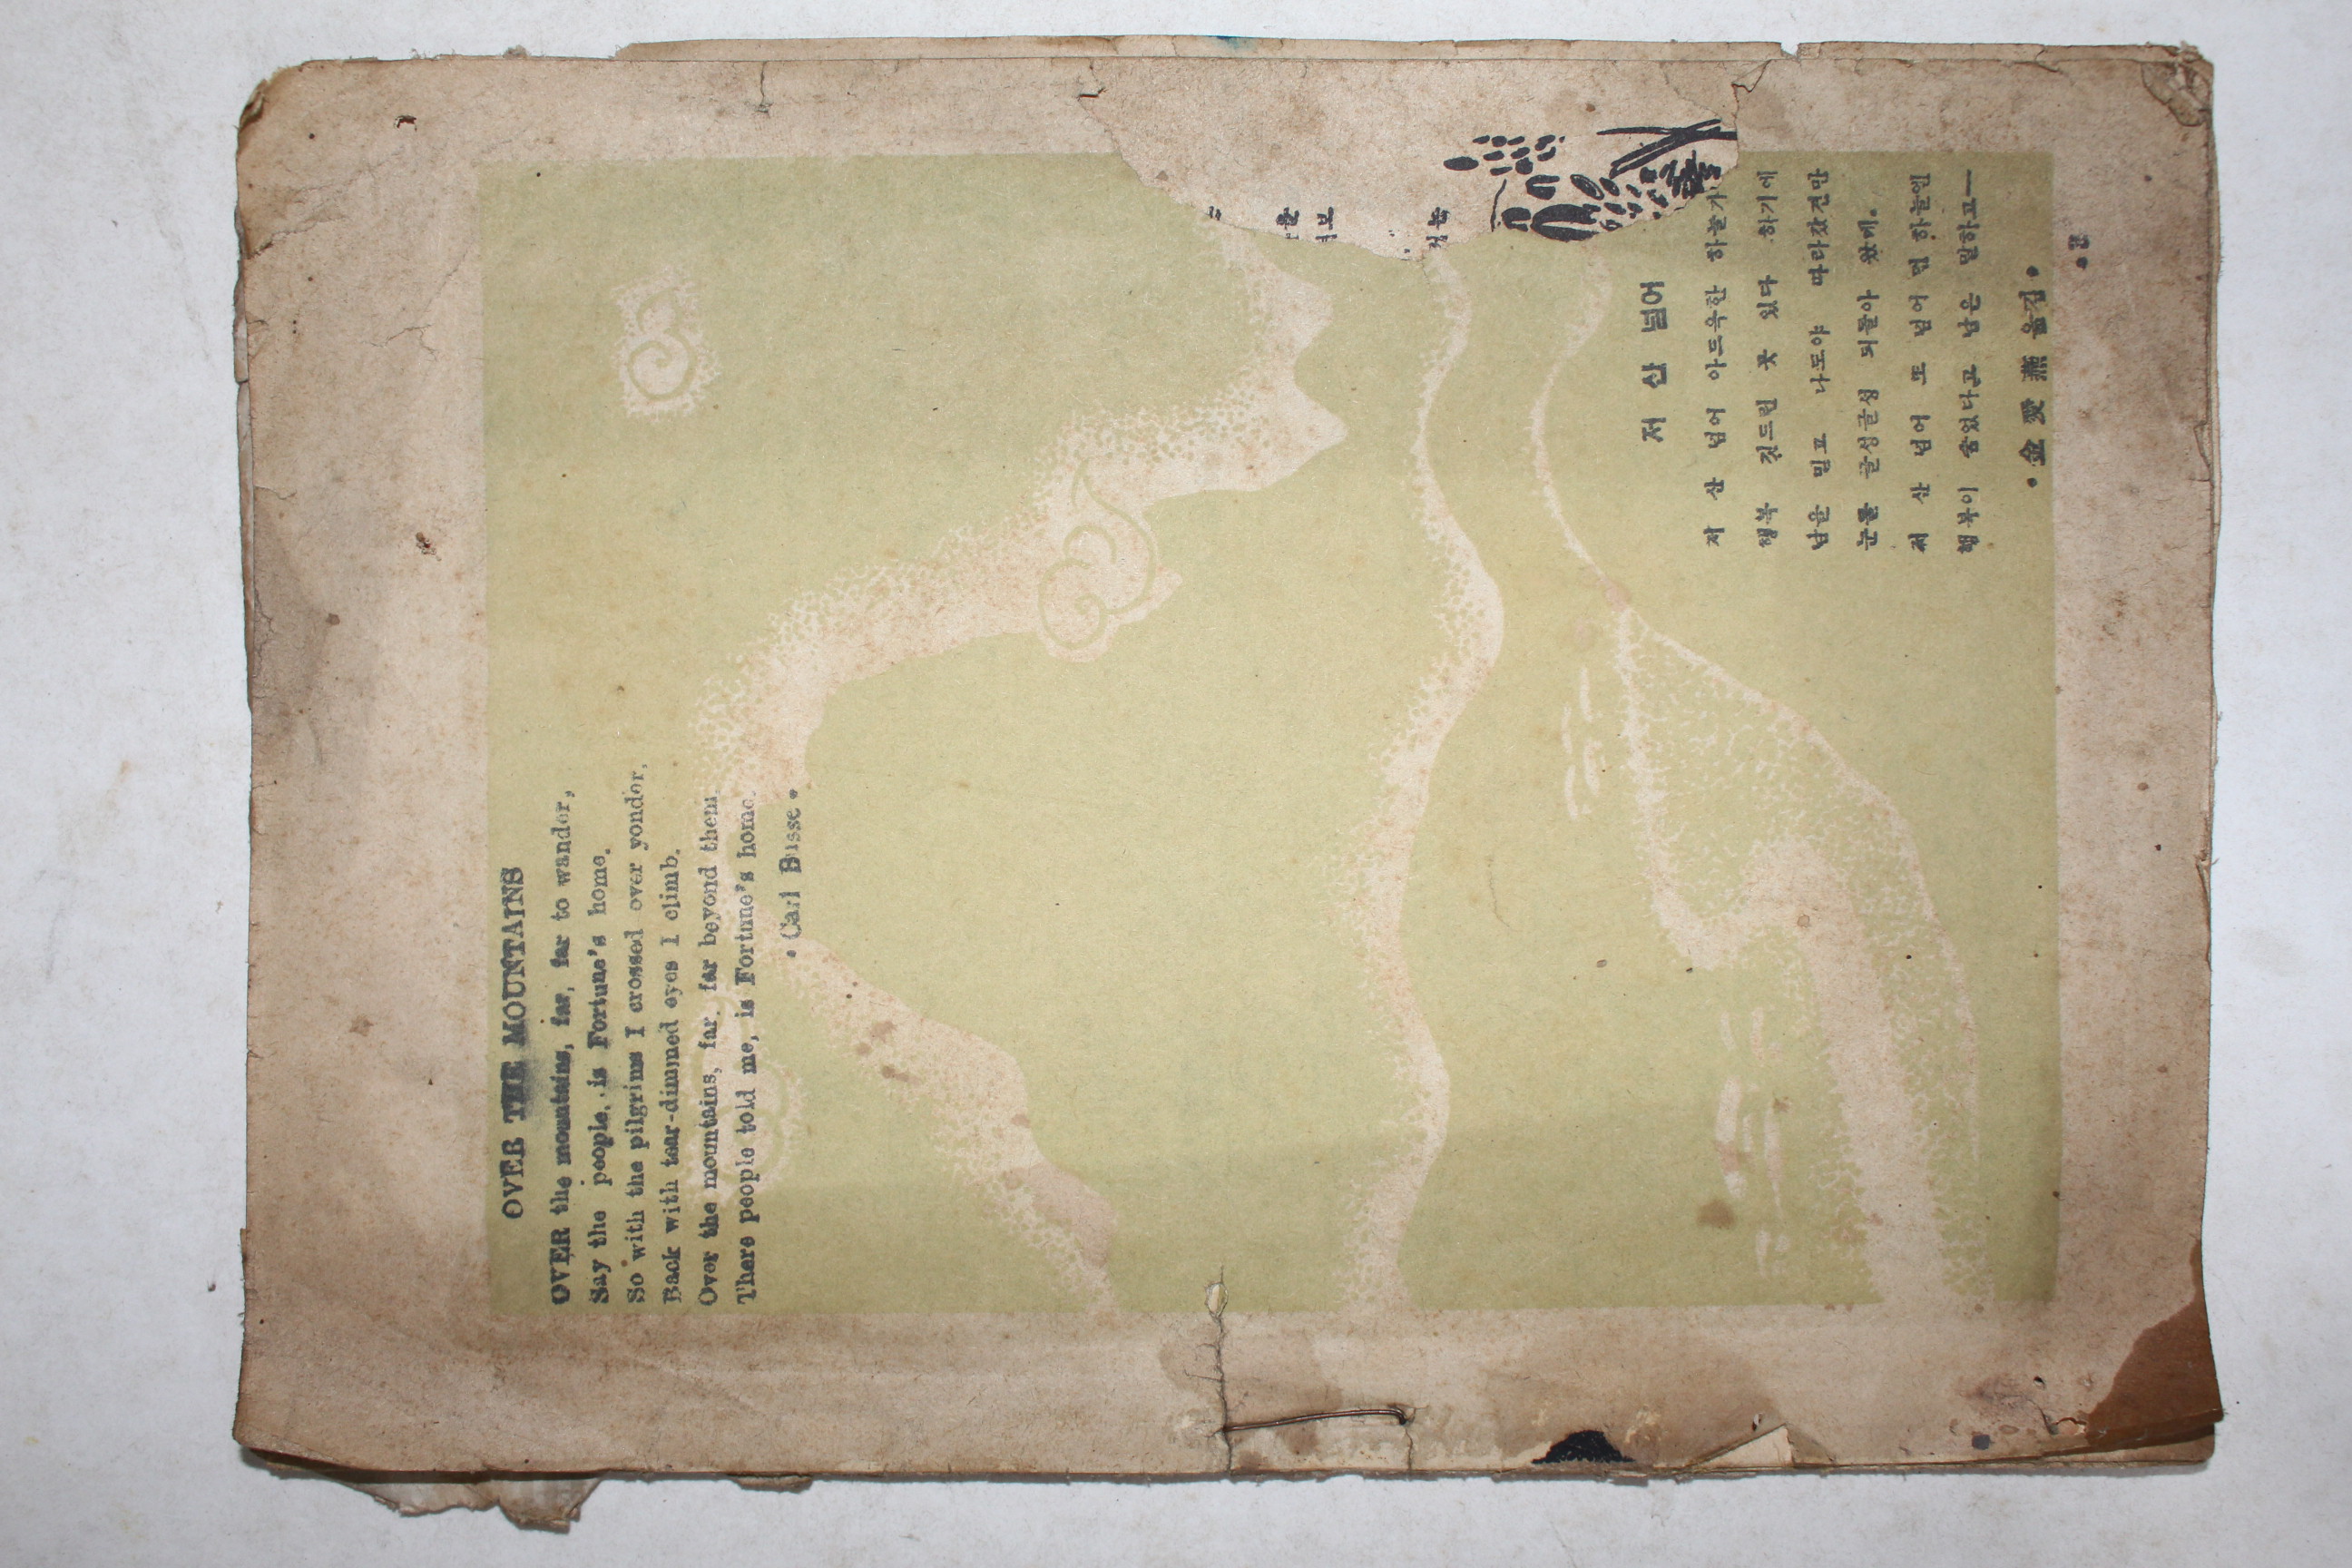 OVER THE MOUNTAINS
OVER the mountains, far, far to wander,
Say the people, is Fortune's home.
So with the pilgrims I crossed over yonder,
Back with tear-dimmed eyes I climb.
Over the mountains, far, far beyond them,
There people told me, is Fortune's home.
• Carl Busse •
저 산 넘어
저 산 넘어 아드윽한 하늘가
행복 깃드린 곳 있다 하기에
남을 믿고 나도야 따라갔건만
눈물 글성글성 되돌아 왔네.
저 산 넘어 또 넘어 먼 하늘엔
행복이 숨었다고 남은 말하고—
• 金愛燕 옮김 •